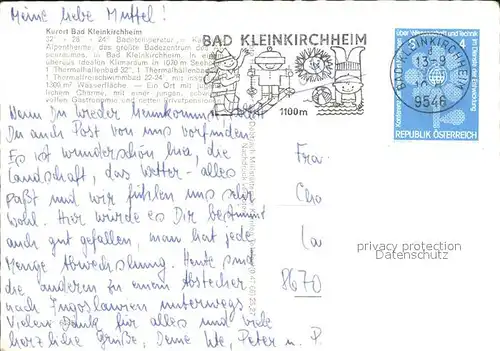 Meine liebe Muffel!
Kurort Bad Kleinkirchheim
32° - 28° - 24° Badetemperatur
Alpentherme, das größte Badezentrum des
in Bad Kleinkirchheim. In einem
überaus idealen Klimaraum in 1070 m Seehöhe
1 Thermalhallenbad 32°, 1 Thermalhallenbad
1 Thermalfreischwimmbad 22-24 mit
1300 m² Wasserfläche — Ein Ort mit
lichem Charme, mit einer jungen,
vollen Gastronomie und netter Privatpension
BAD KLEINKIRCHHEIM
1100m
BAD KLEINKIRCHHEIM
13-9
9546
über Wissenschaft und Technik
REPUBLIK ÖSTERREICH
Wenn Du wieder heimkommst
Du auch Post von uns vorfinden.
Es ist wunderschön hier, die
Landschaft, das Wetter - alles
paßt und wir fühlen uns sehr
wohl. Hier würde es Dir bestimmt
auch gut gefallen, man hat jede
Menge Abwechslung. Heute sind
die anderen zu einem Abstecher
nach Jugoslawien unterwegs.
Vielen Dank für alles und viele
herzliche Grüße, Deine Ute, Peter u. P.
Fra.
Cho
La
8670
privacy protection
Datenschutz